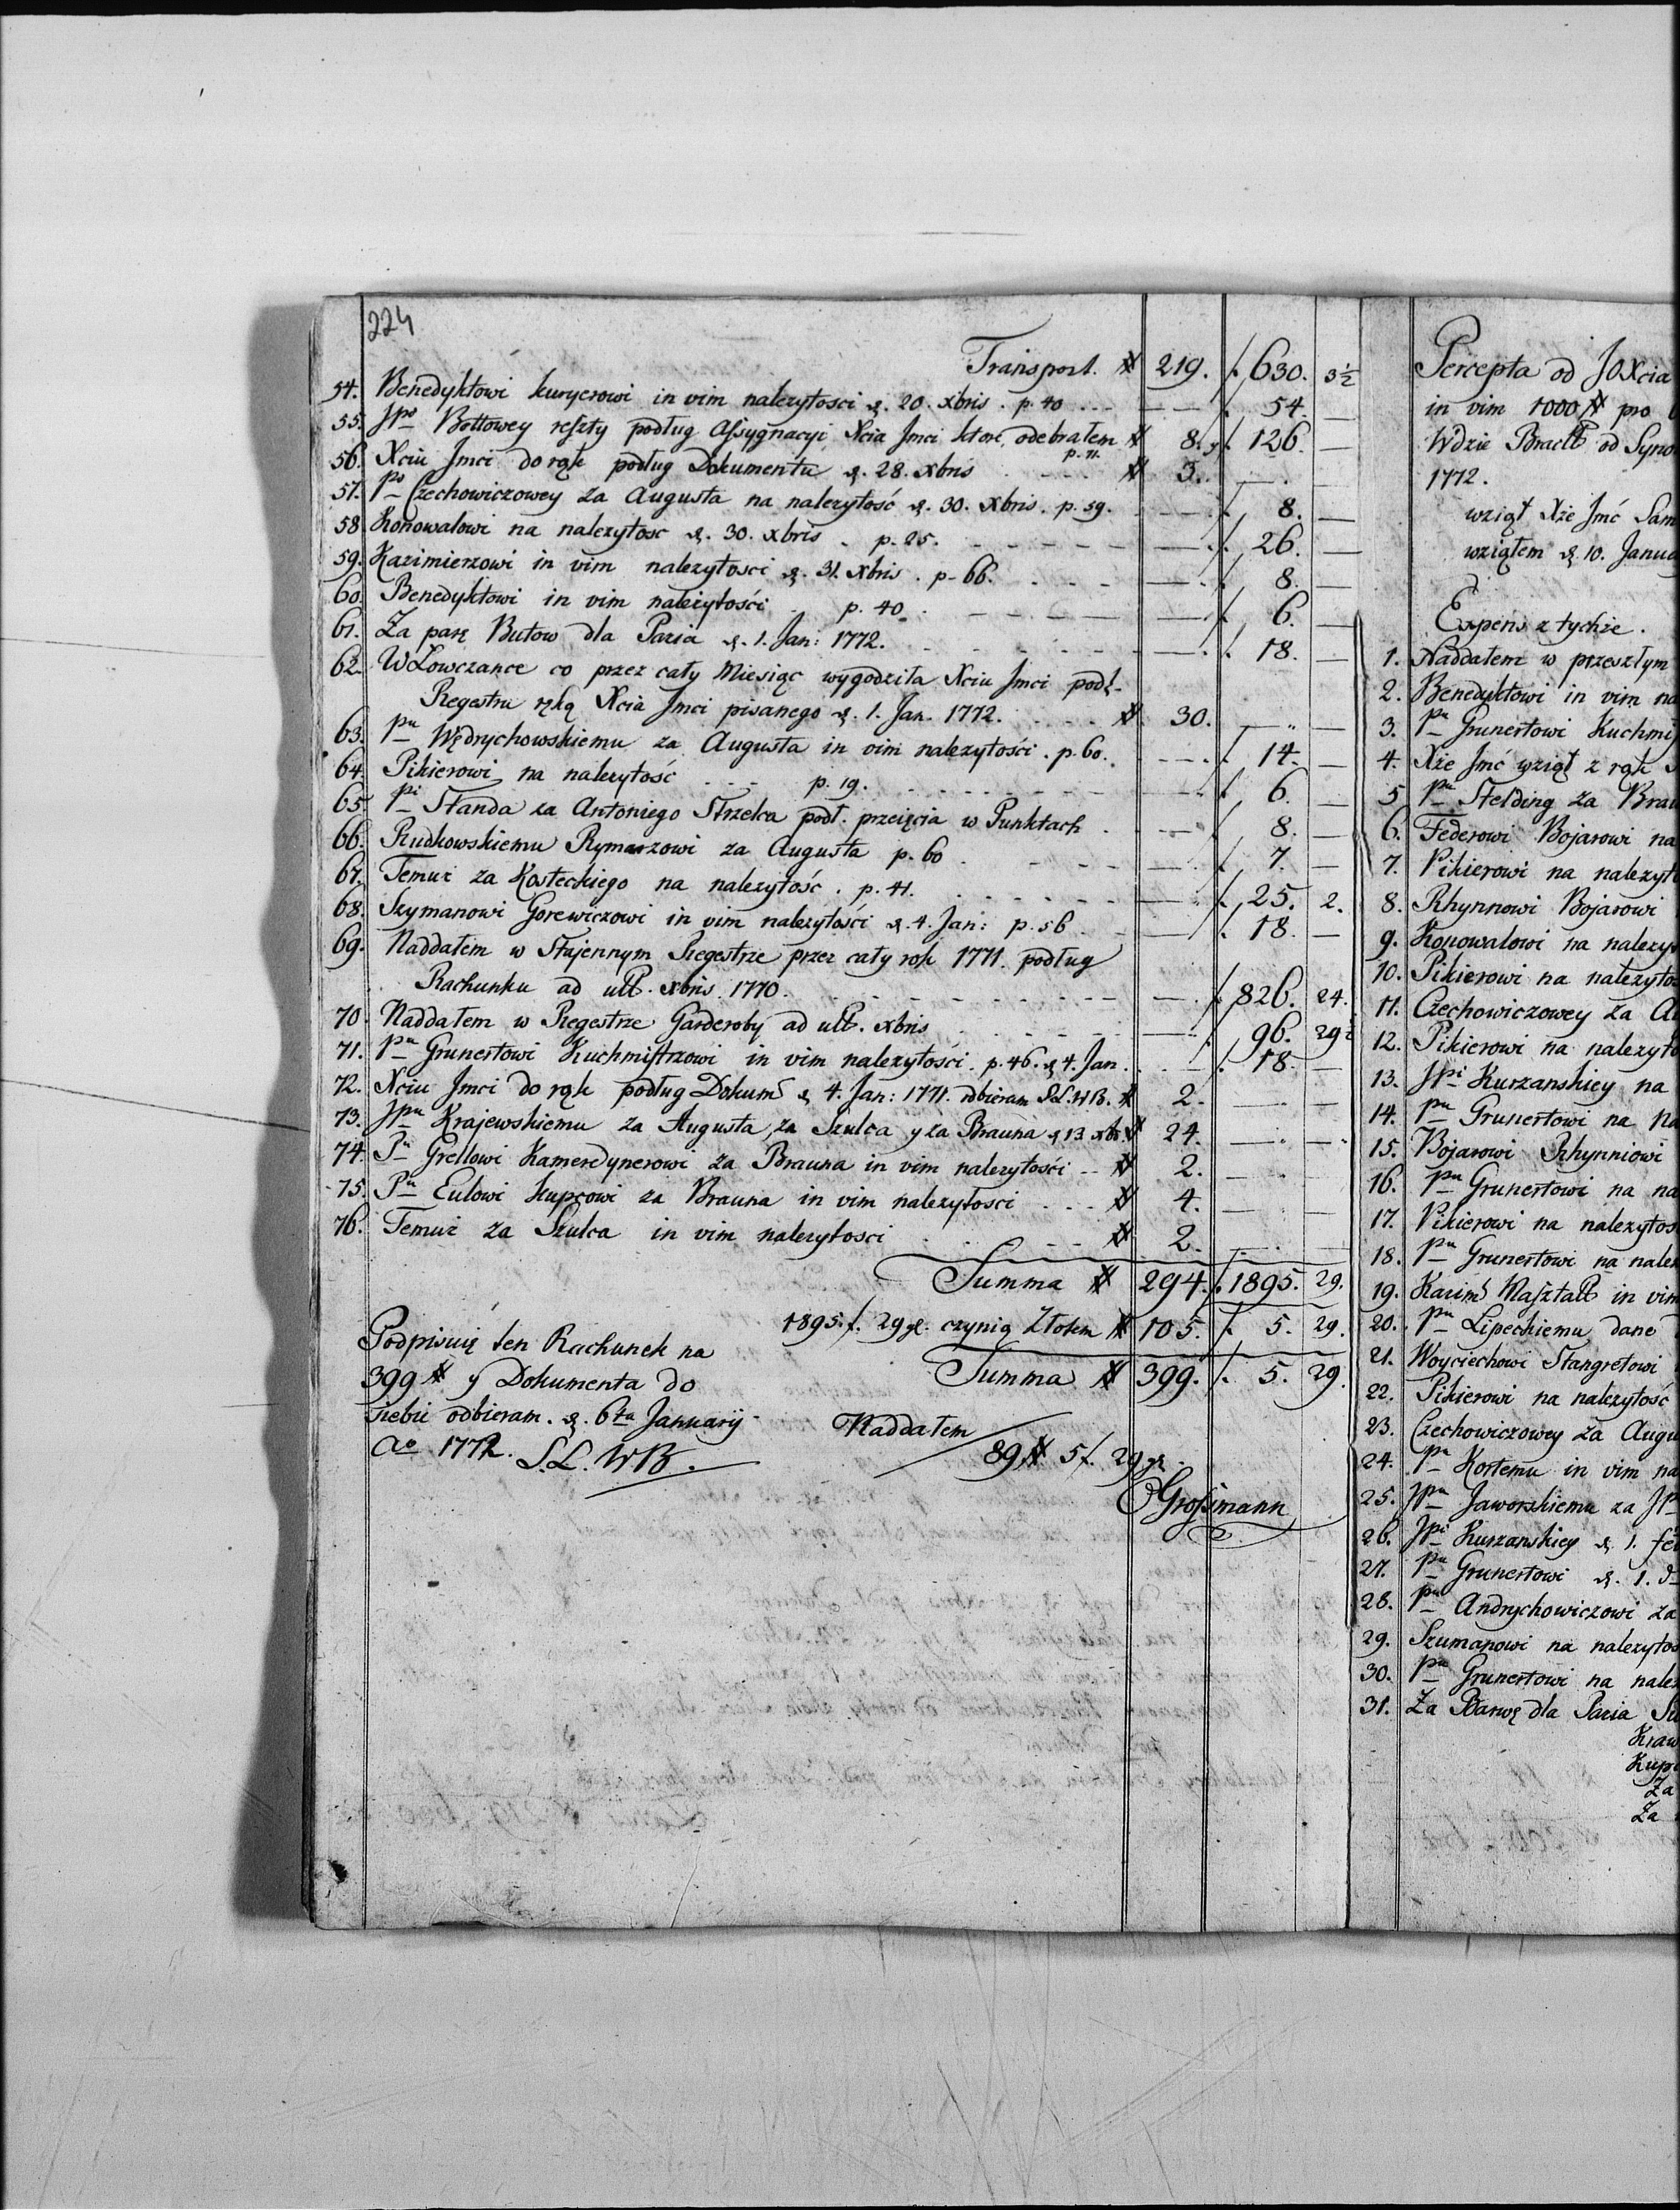 224
Transport. # 219. f. 630. 3½
54. Benedyktowi kuryerowi in vim nalezytosci d. 20. xbris. p. 40 f. 54.
55. JPo Bottowey reszty podług Assygnacyi Xcia Jmci ktore odebrałem # 8. f. 126.
p. 11.
56. Xciu Jmci do rąk podług Dokumentu d. 28. xbris # 3.
57. Po Czechowiczowey za Augusta na nalezytość d. 30. xbris. p. 59. f. 8.
58 Konowalowi na nalezytosc d. 30. xbris. p. 25. f. 26.
59. Kazimierzowi in vim nalezytosci d. 31. xbris. p. 66. f. 8.
60. Benedyktowi in vim należytości p. 40. f. 6.
61. Za parę Butow dla Pazia d. 1. Jan: 1772. f. 18.
62. W Łowczance co przez cały Miesiąc wygodziła Xciu Jmci podł.
Regestru ręką Xcia Jmci pisanego d. 1. Jan. 1772. # 30.
63. Pu Wędrychowskiemu za Augusta in vim nalezytości. p. 60. f. 14.
64. Pikierowi na nalezytość p. 19. f. 6.
65. Pi Standa za Antoniego Strzelca podł. przeięcia w Punktach f. 8.
66. Rudkowskiemu Rymarzowi za Augusta p. 60 f. 7.
67. Temuż za Kosteckiego na nalezytość. p. 41. f. 25. 2.
68. Szymanowi Gorewiczowi in vim nalezytości d. 4. Jan: p. 56 f. 18.
69. Naddałem w Stajennym Regestrze przez cały rok 1771. podług
Rachunku ad ult. xbris. 1770. f. 826. 24.
70. Naddałem w Regestrze Garderoby ad ult. xbris f. 96. 29½
71. Pu Grunertowi Kuchmistrzowi in vim nalezytości. p. 46. d. 4. Jan. f. 18.
72. Xciu Jmci do rąk podług Dokum d. 4. Jan: 1771. odbieram S.L.WB. # 2.
73. JPu Krajewskiemu za Augusta, za Szulca y za Brauna d. 13 xbr # 24.
74. Pu Grellowi Kamerdynerowi za Brauna in vim nalezytości # 2.
75. Pu Eulowi kupcowi za Brauna in vim nalezytosci # 4.
76. Temuż za Szulca in vim nalezytosci # 2.
Summa # 294. f. 1895. 29.
1895. f. 29 gr. czynią Złotem # 105. f. 5. 29.
Summa # 399. f. 5. 29.
Podpisuię ten Rachunek na
399 # y Dokumenta do
siebie odbieram. d. 6ta Januarij
Ao 1772. S.L. WB.
Naddałem
89 # 5 f. 29 gr.
Grossmann
Percepta od JOXcia
in vim 1000 # pro
1772.
wziął Xże Jmć Sam
wziąłem d. 10. Janua
Expens z tychże.
1. Naddałem w przeszłym
2. Benedyktowi in vim na
3. Pu Grunertowi Kuchmi
4. Xże Jmć wziął z rąk
5 Pu Stelding za Brau
6. Federowi Bojarowi na
7. Pikierowi na nalezyto
8. Rhynnowi Bojarowi
9. Konowalowi na nalezy
10. Pikierowi na nalezyto
11. Czechowiczowey za Au
12. Pikierowi na nalezyto
13. JPi Kurzanskiey na
14. Pu Grunertowi na na
15. Bojarowi Rhynniowi
16. Pu Grunertowi na na
17. Pikierowi na nalezytos
18. Pu Grunertowi na nale
19. Kazim Masztall in vim
20. Pu Lipeckiemu dane
21. Woyciechowi Stangretowi
22. Pikierowi na nalezytość
23. Czechowiczowey za Augu
24. Pu Kortemu in vim na
25. JPu Jaworskiemu za JP
26. JPi Kurzanskiey d. 1. fe
27. Pu Grunertowi d. 1. d
28. Pu Andrychowiczowi za
29. Szumanowi na nalezytos
30. Pu Grunertowi na nale
31. Za Barwę dla Pazia Su
Kraw
Kupi
Za
Za